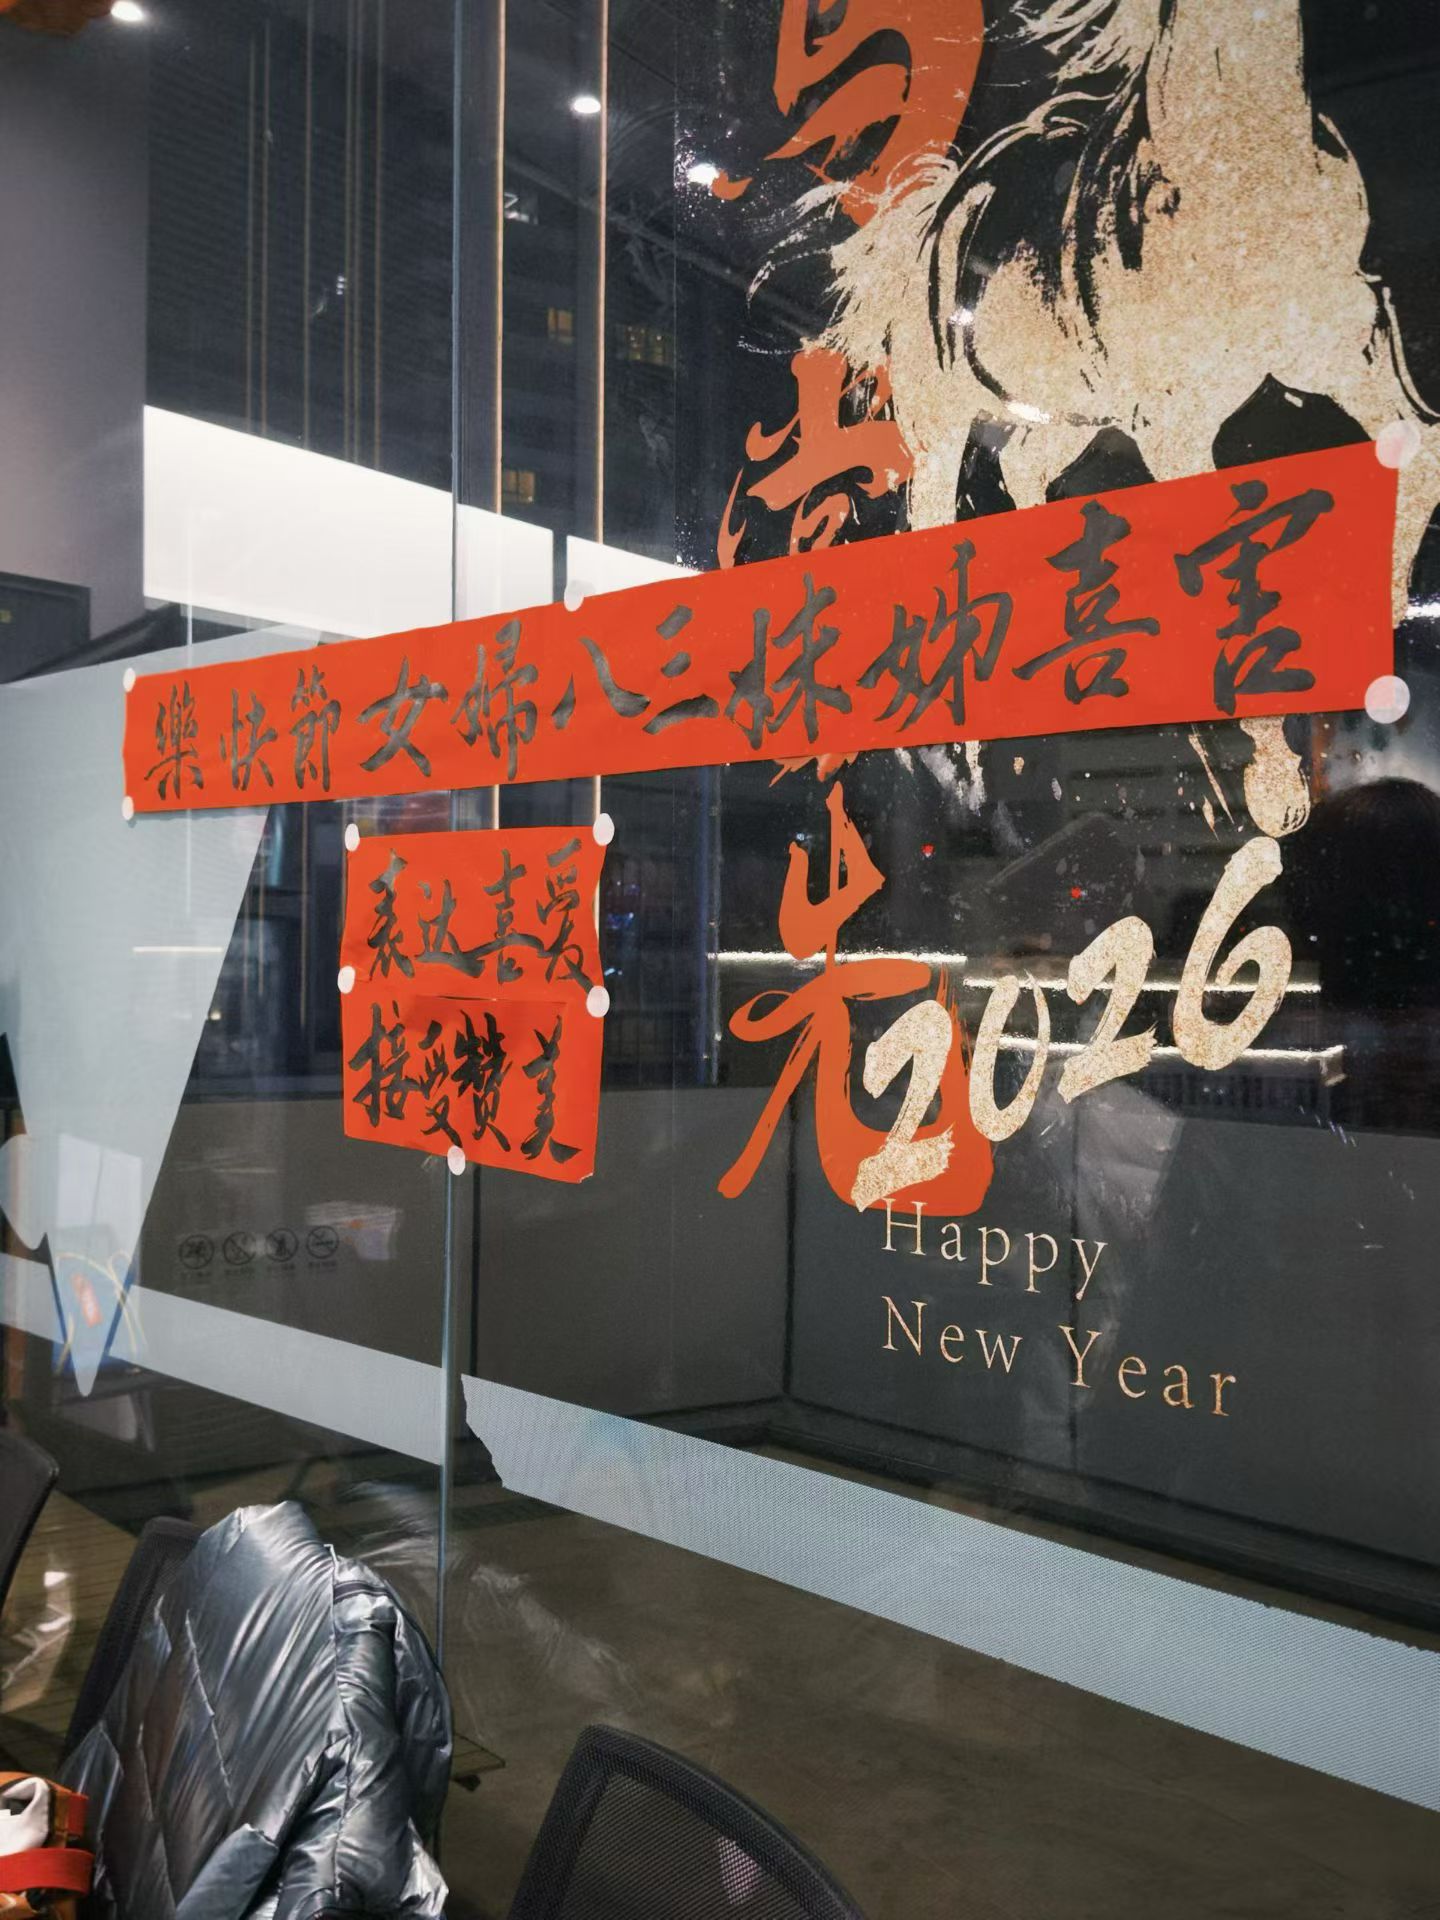 马
先
害喜姊妹三八婦女節快樂
表达喜爱
接受赞美
2026
Happy
New Year